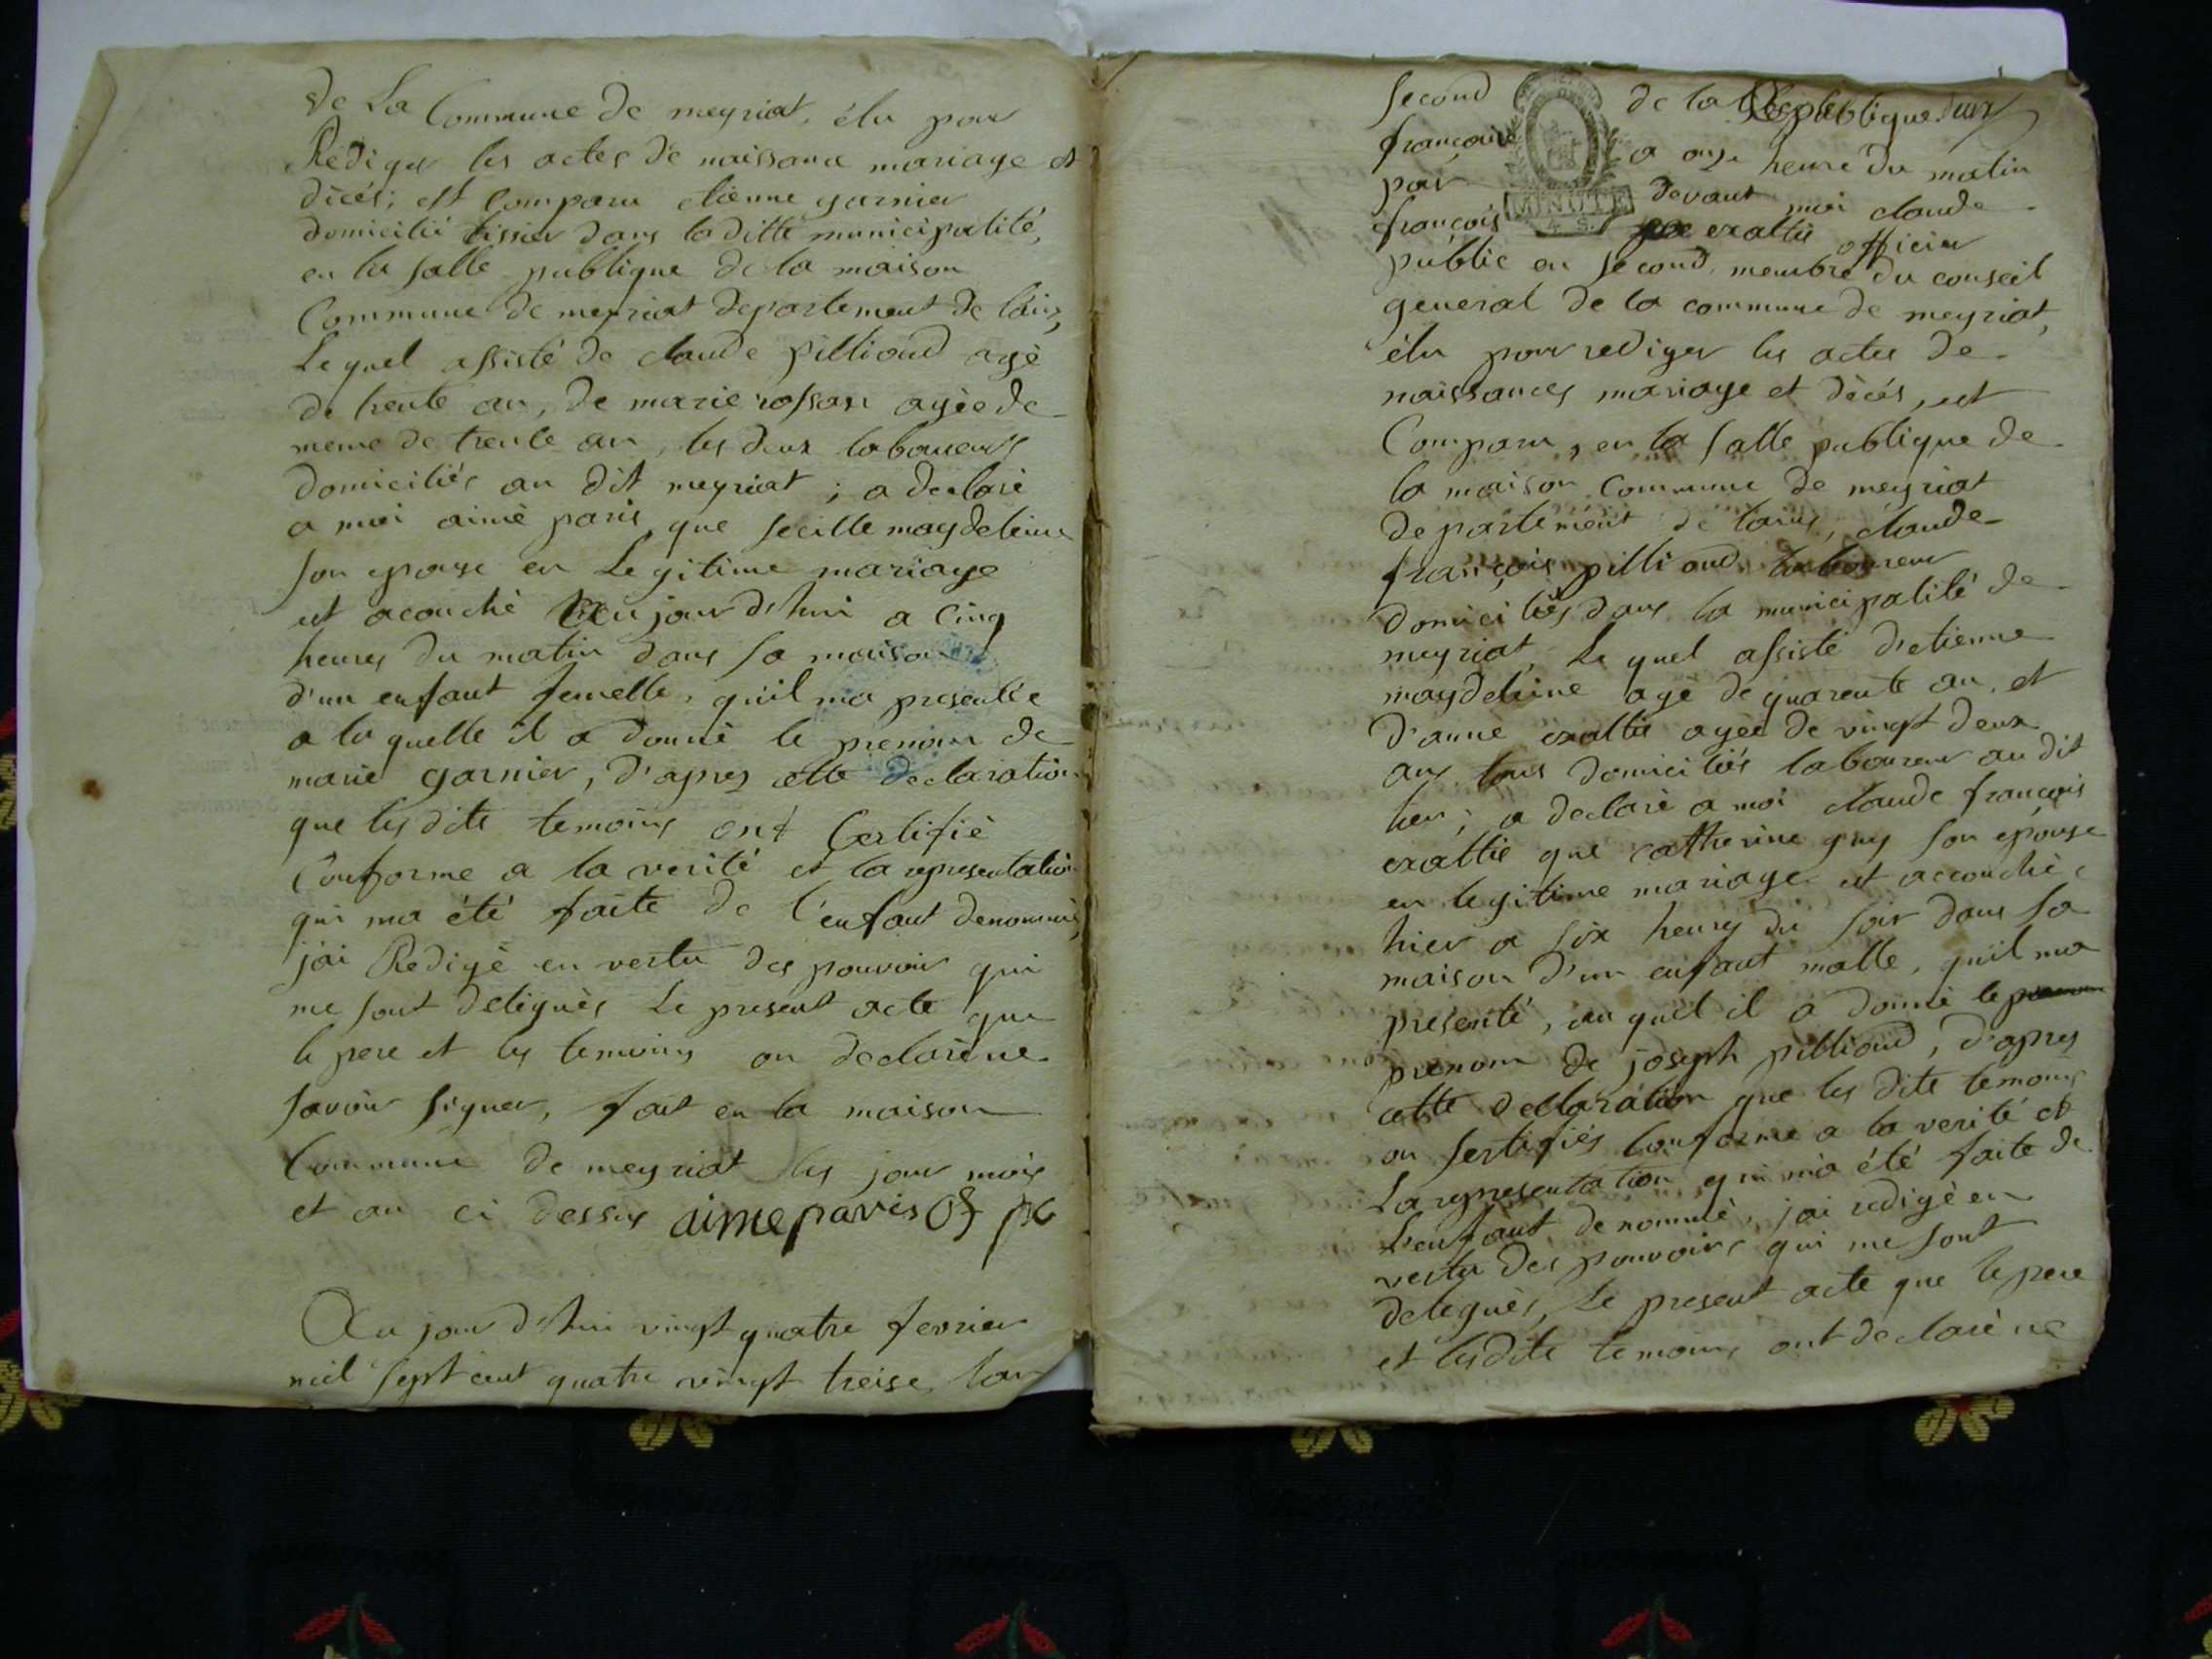 de La Commune de meyriat, élu pour
Rediger les actes de naissance mariage et
décés; est Comparu etienne garnier
domicilié tissier dans laditte municipalité,
en la salle publique de la maison
Commune de meyriat departement de lain,
Le quel assisté de claude pillioud agé
de trente an, de marie agée de
meme de trente an, les deux laboureurs
domiciliés au dit meyriat; a declaré
a moi aimé paris que secille maydeleine
son epouse en Legitime mariage
est acouché aujourd'hui a Cinq
heures du matin dans sa maison
d'un enfant femelle, quil ma presentée
a la quelle il a donné le prenom de
marie garnier, d'apres cette declaration
que les dits temoins ont Certifié
Conforme a la verité et la representation
qui ma été faite de l'enfant denommé,
j'ai Redigé en vertu des pouvoir qui
me sont delegués Le present acte que
le pere et les temoins on declaré ne
savoir signer, fait en la maison
Commune de meyriat les jour mois
et an ci dessus aime paris
Au jour d'hui vingt quatre fevrier
mil sept cent quatre vingt treise, lan
second de la Republique
françaire a onze heure du matin
par devant moi claude
françois exaltié officier
MINUTE
4 S.
public en second, membre du conseil
general de la commune de meyriat,
élu pour rediger les actes de
naissances mariage et décés, est
Comparu, en la salle publique de
la maison Commune de meyriat
departement de lain, claude
françois pillioud laboureur
domiciliés dans la municipalité de
meyriat, Le quel assisté d'etienne
maydeleine agé de quarente an, et
d'anne exaltié agée de vingt deux
ans tous domiciliés laboureur au dit
lieu; a declaré a moi claude françois
exaltié que catherine guy son épouse
en legitime mariage est accouché
hier a six heures du soir dans sa
maison d'un enfant malle, quil ma
presenté, au quel il a donné le
prenom de joseph pillioud, d'apres
cette declaration que les dits temoins
on sertifiés Conforme a la verité et
La representation qui m'a été faite de
L'enfant denommé, j'ai redigé en
vertu des pouvoirs qui me sont
delegués, Le present acte que le pere
et les dits temoins ont declaré ne